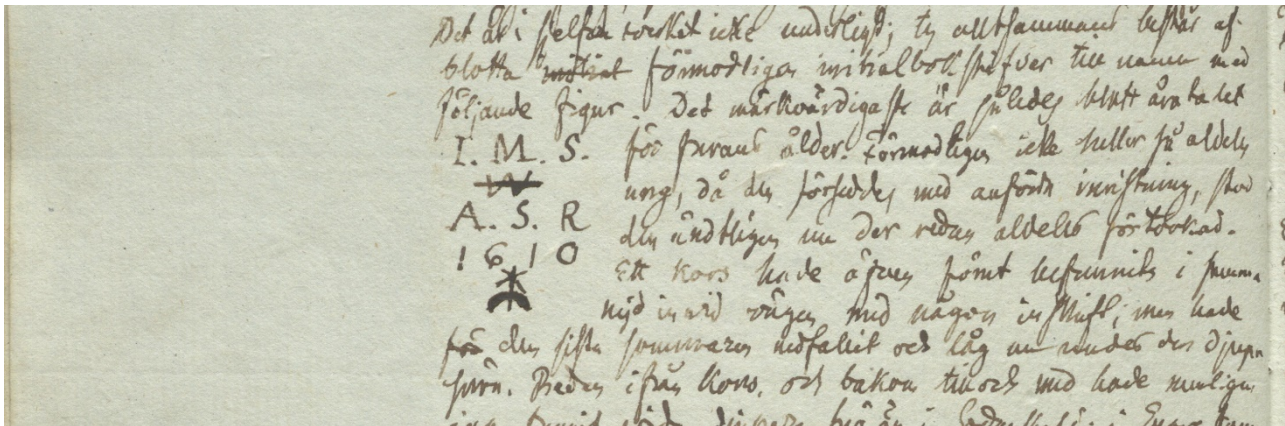 Det är i sjelfva verket icke underligt; ty alltsammans består af
blotta initial förmodligen initialbokstäfver till namn med
följande figur. Det märkvärdigaste är således blott årtalet
I. M. S. för furans ålder. Förmodligen icke heller så aldeles
W ung, då den förseddes med anförde inristning, stod
A. S. R den ändtligen nu der redan aldeles förtorkad.
1610 Ett kors hade äfven förut befunnits i samma
nejd invid vägen med någon inskrift; men hade
för den sista sommaren nedfallit och låg nu under den djupa
snön. Redan ifrån Kors. och bakom till och med hade nemligen